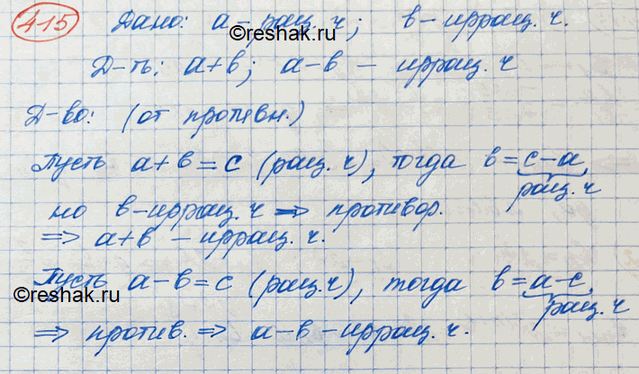 415 Дано: a – рац. ч; в – иррац. ч.
©reshak.ru
Д-ть: a+в; a-в – иррац. ч
Д-во: (от противн.)
Пусть a+в=c (рац. ч), тогда в=c-a
рац. ч
но в-иррац. ч ⇒ противор.
⇒ a+в – иррац. ч.
Пусть a-в=c (рац. ч), тогда в=a-c,
©reshak.ru
рац. ч
⇒ против. ⇒ a-в-иррац. ч.